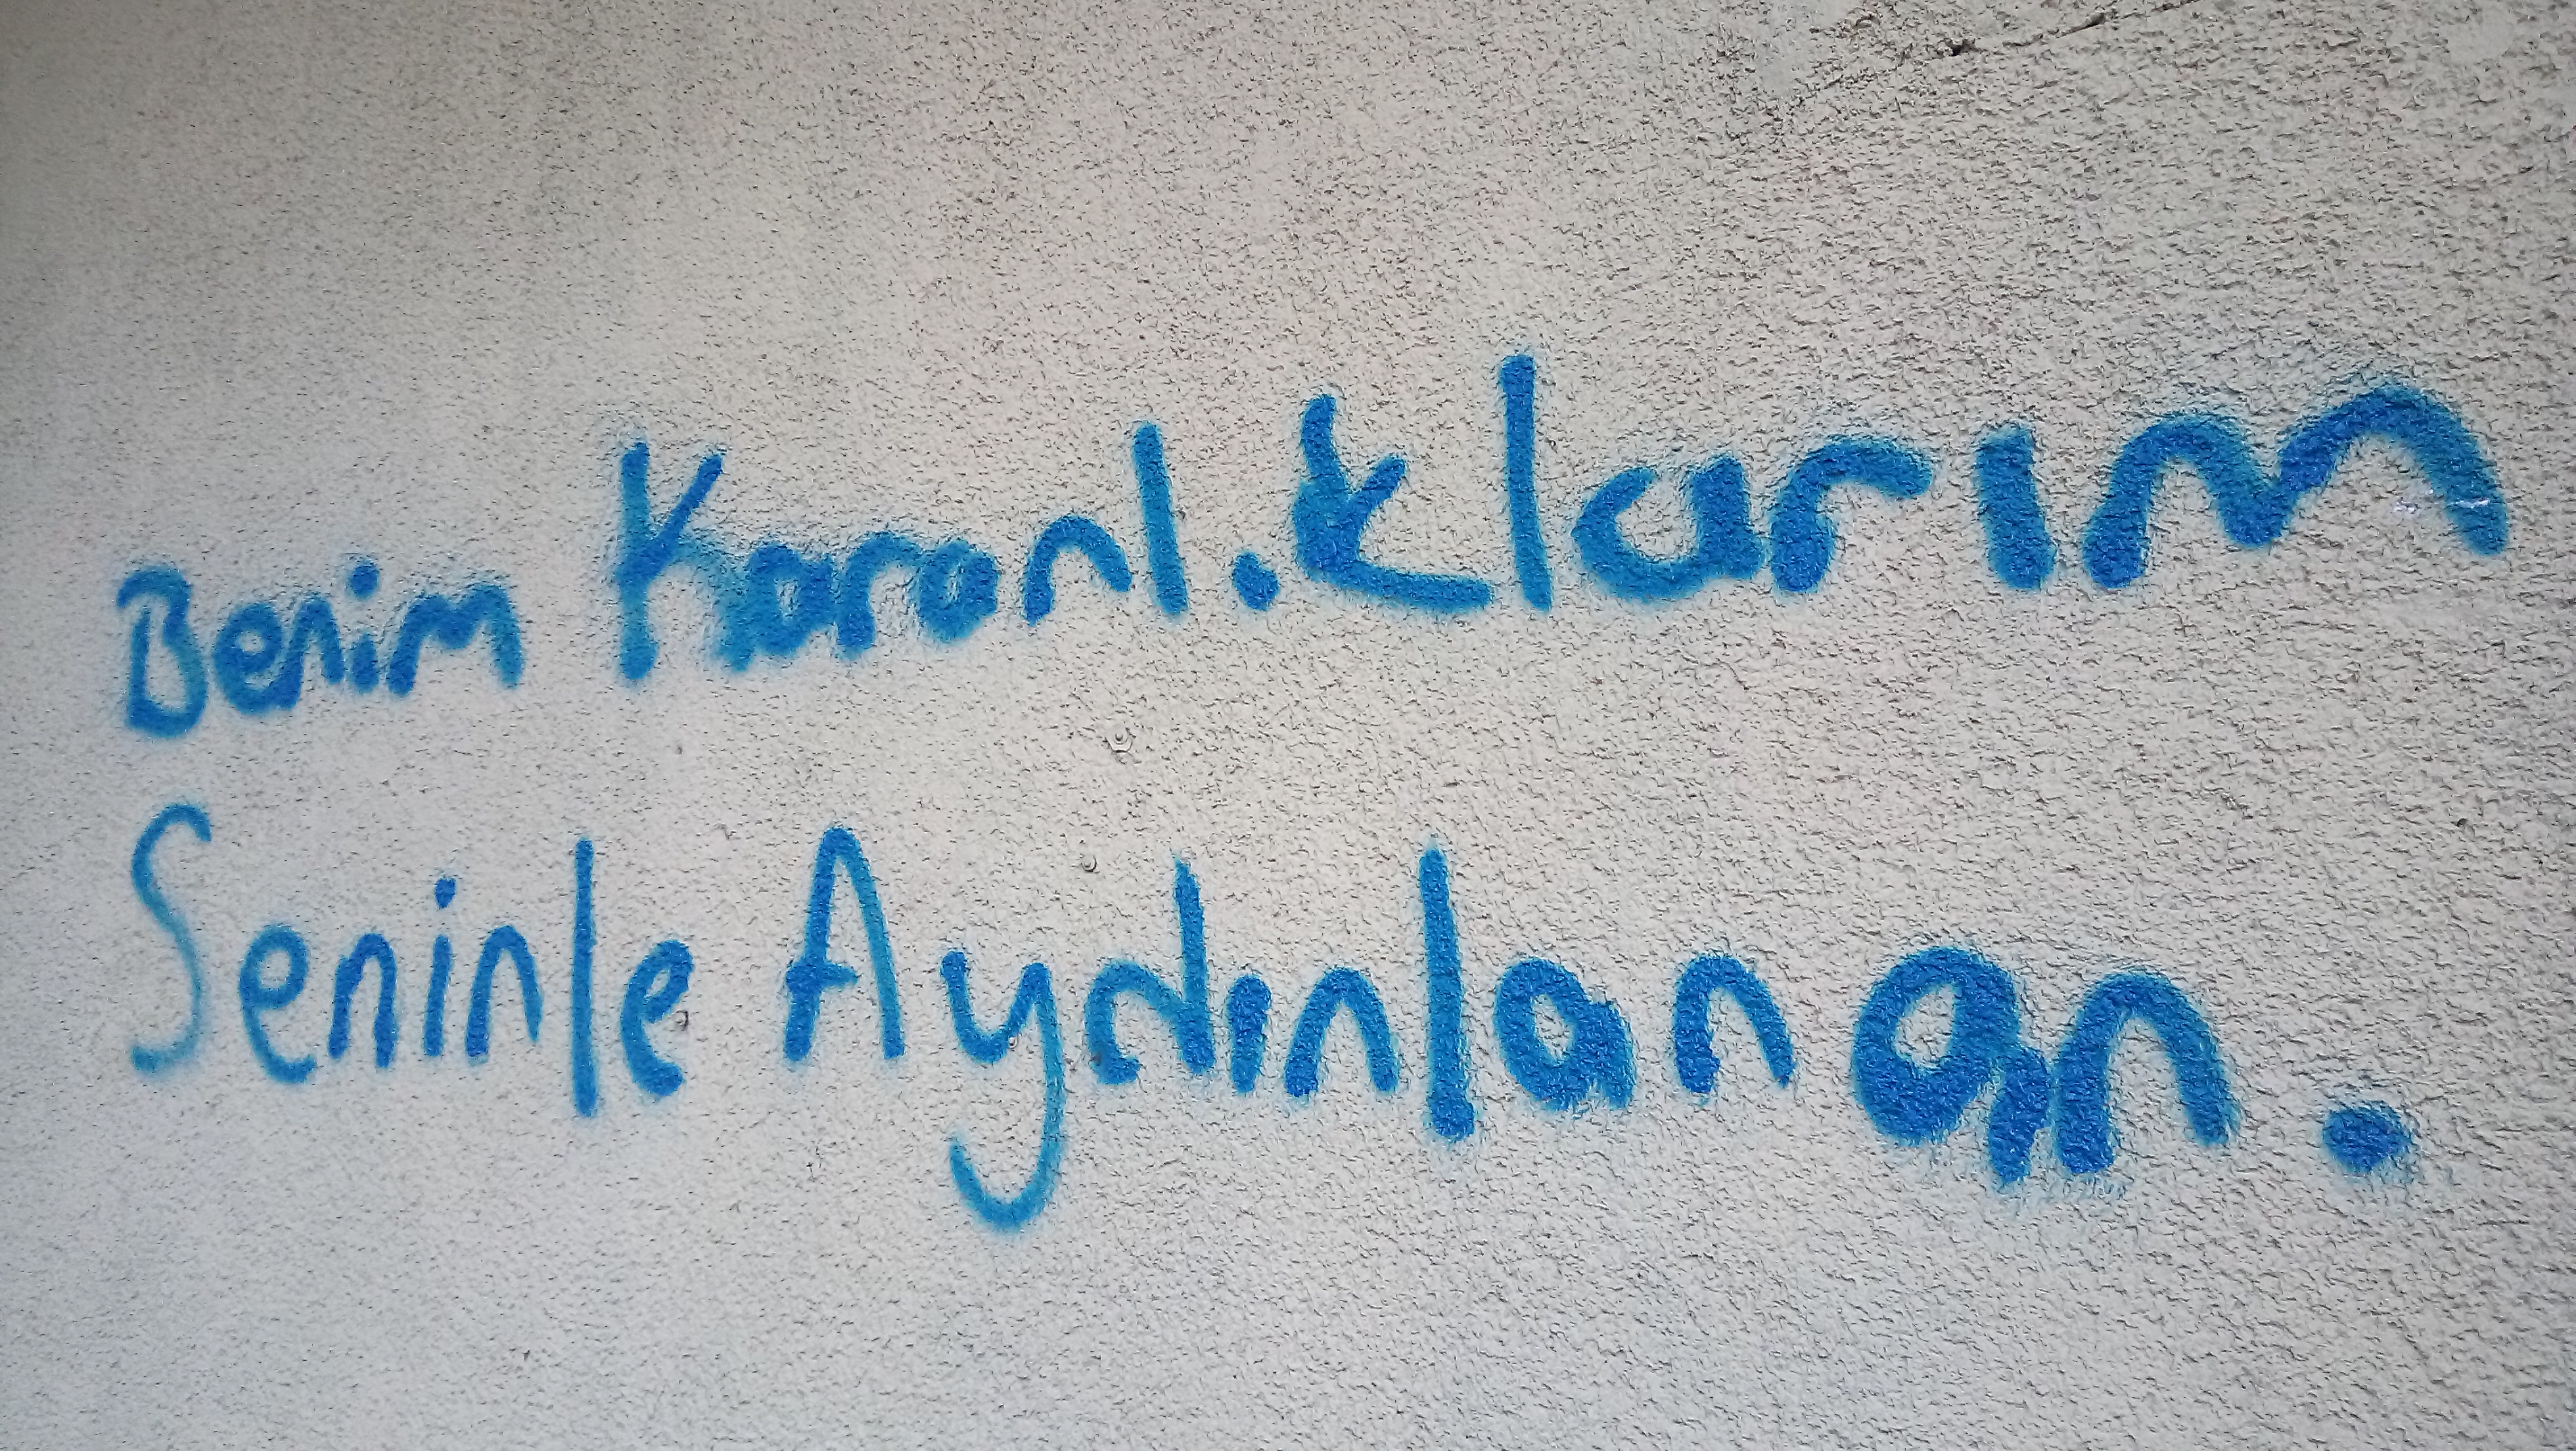 Benim Karanl.klarım
Seninle Aydınlanan.